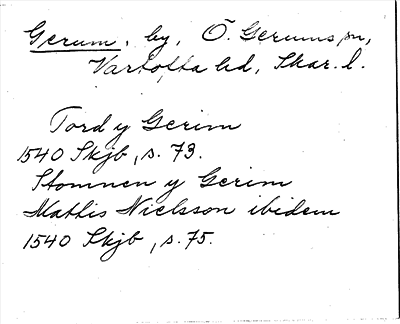 Gerum, by, Ö. Gerums sn,
Vartofta hd, Skar. l.
Tord y Gerim
1540 Skjb, s. 73.
Stomnen y Gerim
Mattis Nielsson ibidem
1540 Skjb, s. 75.